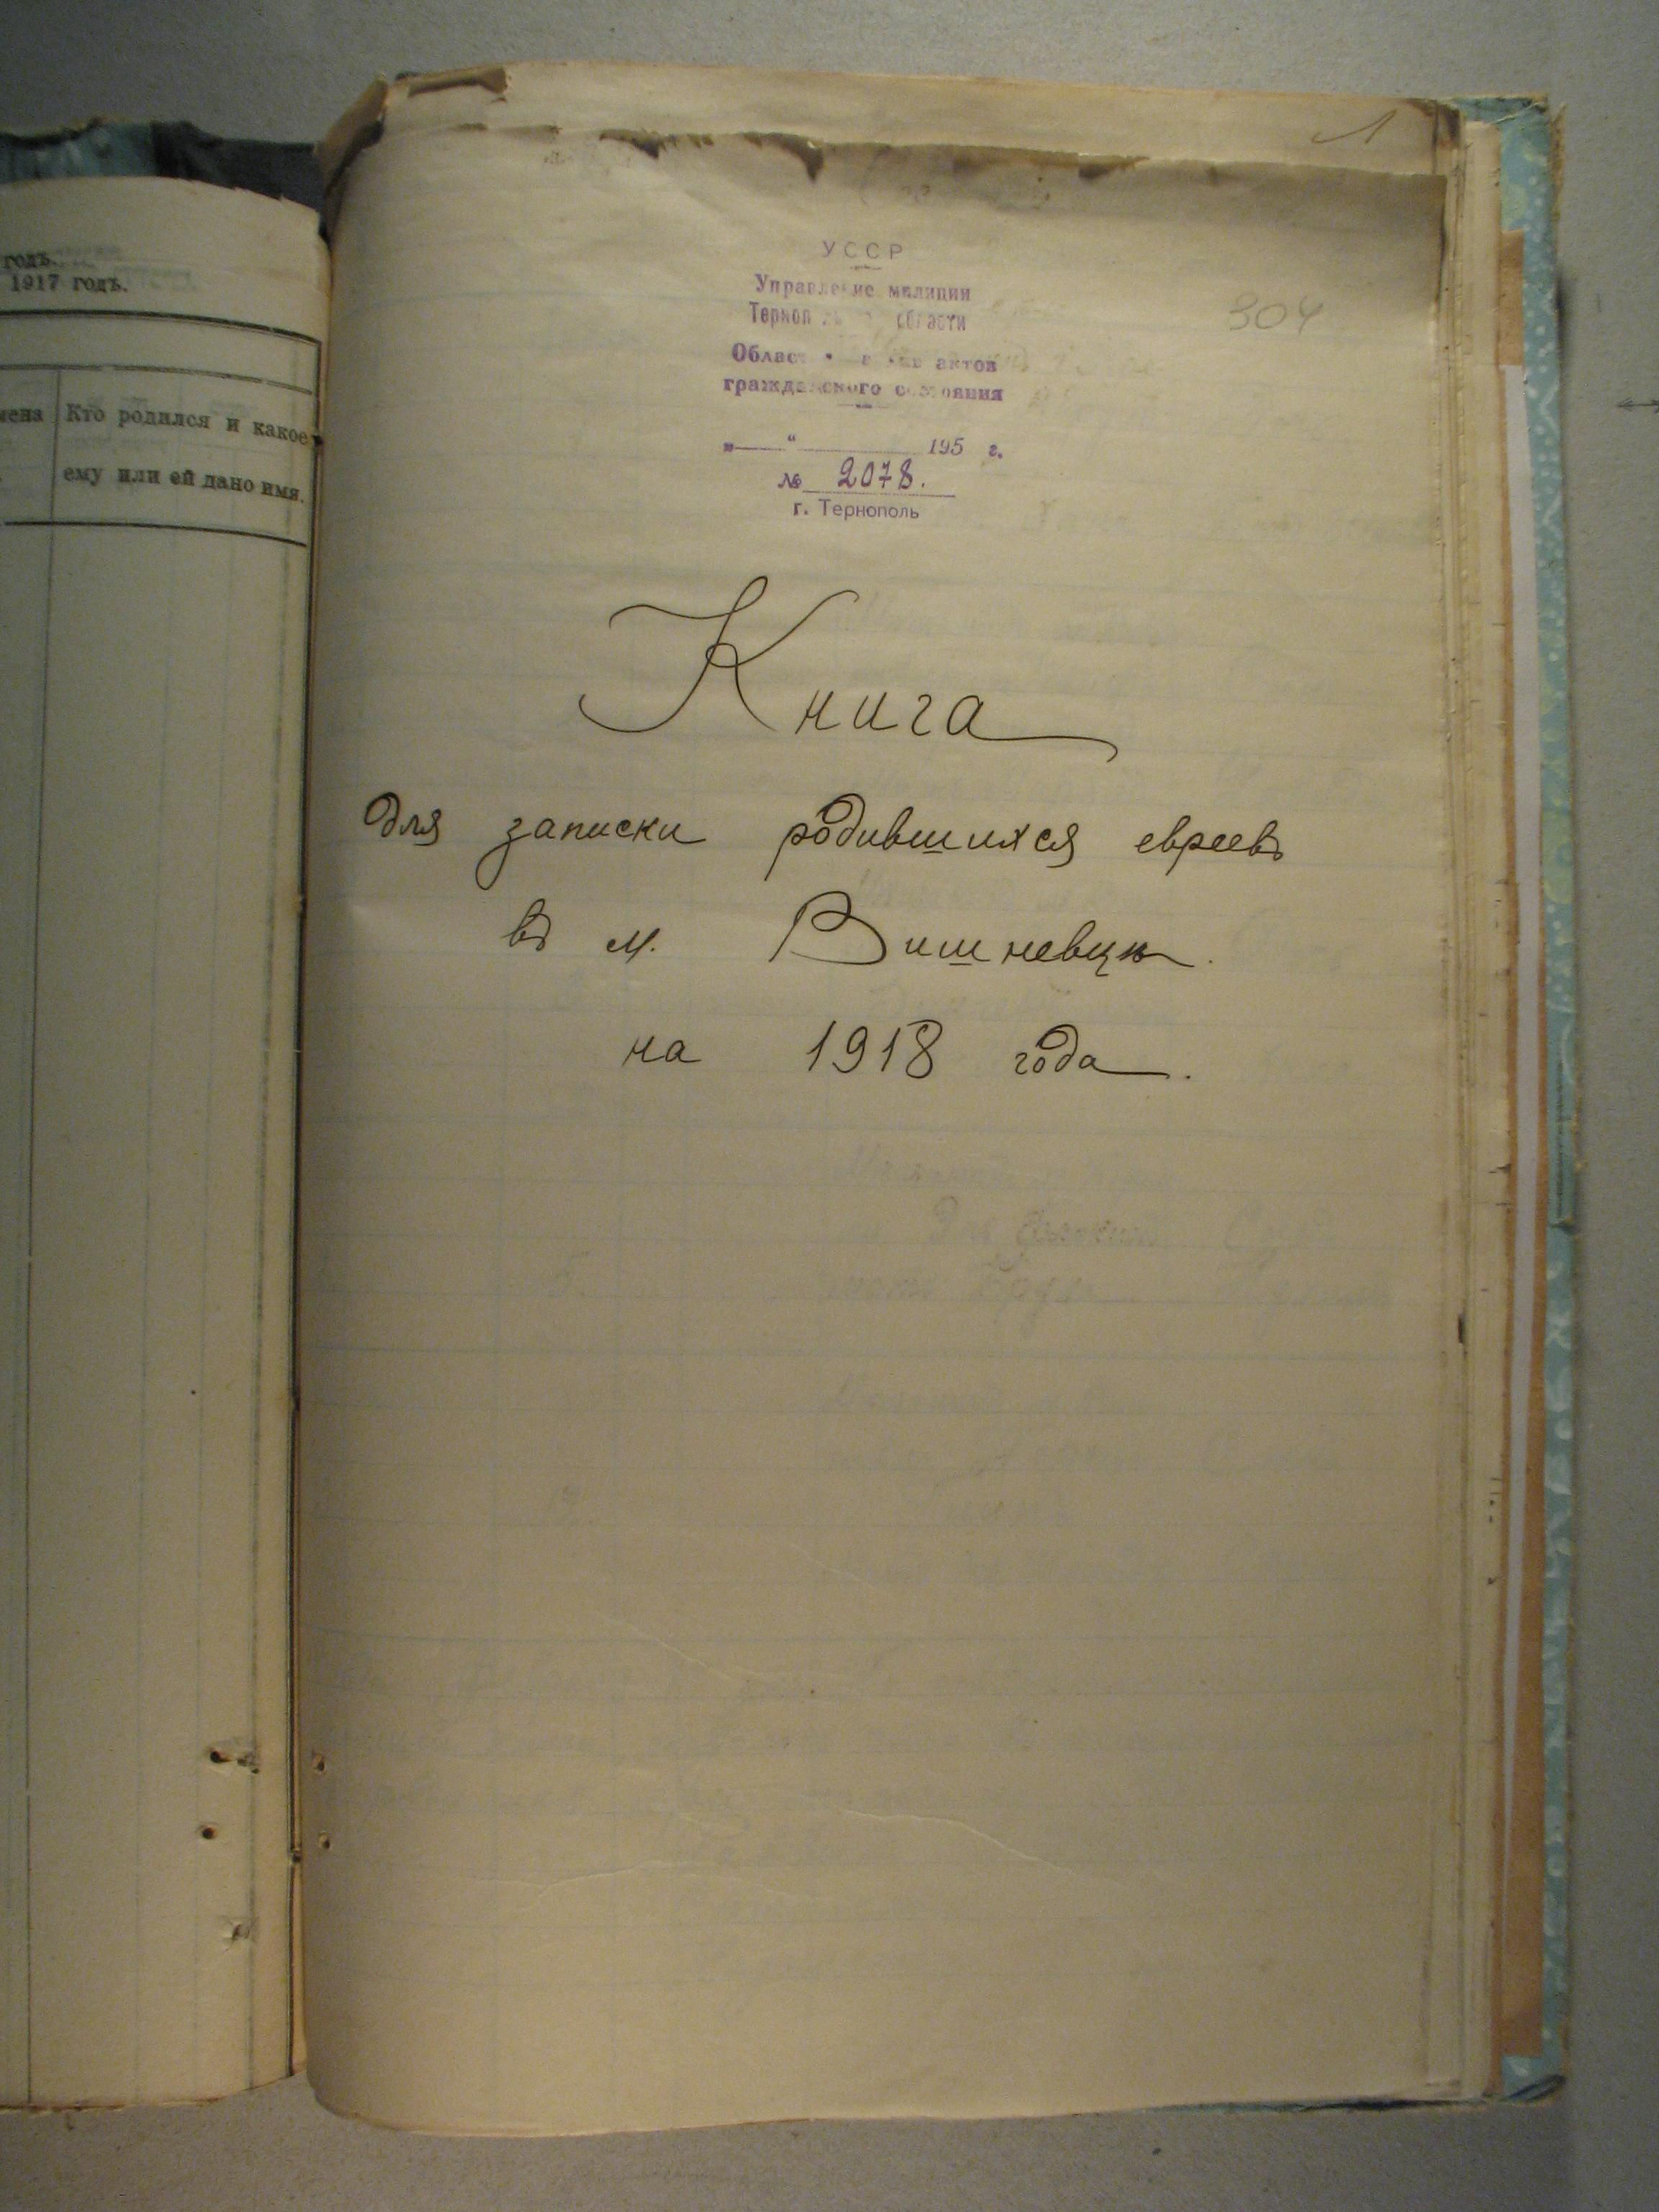 годъ.
1917 годъ.
Кто родился и какое
ему или ей дано имя.
1
304
УССР
Управление милиции
области
актов
гражданского состояния
„ “ 195 г.
№ 2078.
г. Тернополь
Книга
для записки родившихся евреевъ
въ м. Вишневцѣ.
на 1918 года.